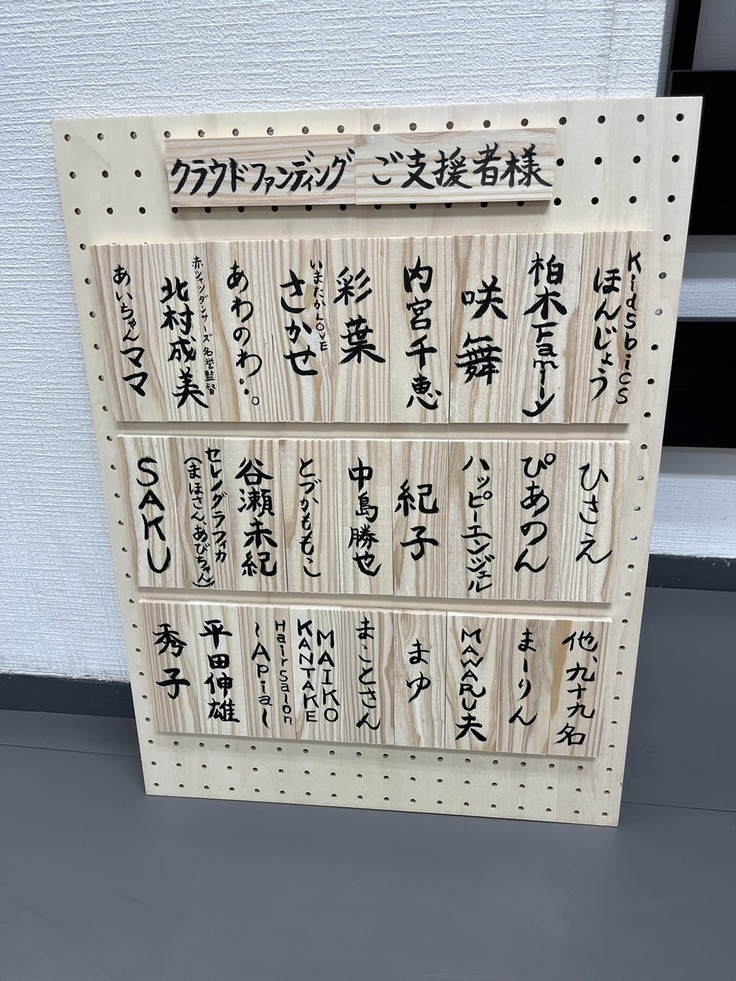 クラウドファンディング ご支援者様
Kidsbics
ほんじょう
柏木Family
咲舞
内宮千恵
彩葉
いまたかLOVE
さかせ
あわのわ…。
赤シャツダンサーズ 名誉監督
北村成美
あいちゃんママ
ひさえ
ぴあのん
ハッピーエンジェル
紀子
中島勝也
とづかももこ
谷瀬未紀
セレノグラフィカ
(まほさん、あびちゃん)
SAKU
他、九十九名
まーりん
MAWARU夫
まゆ
まことさん
MAIKO
KANTAKE
Hairsalon
~Apia~
平田伸雄
秀子